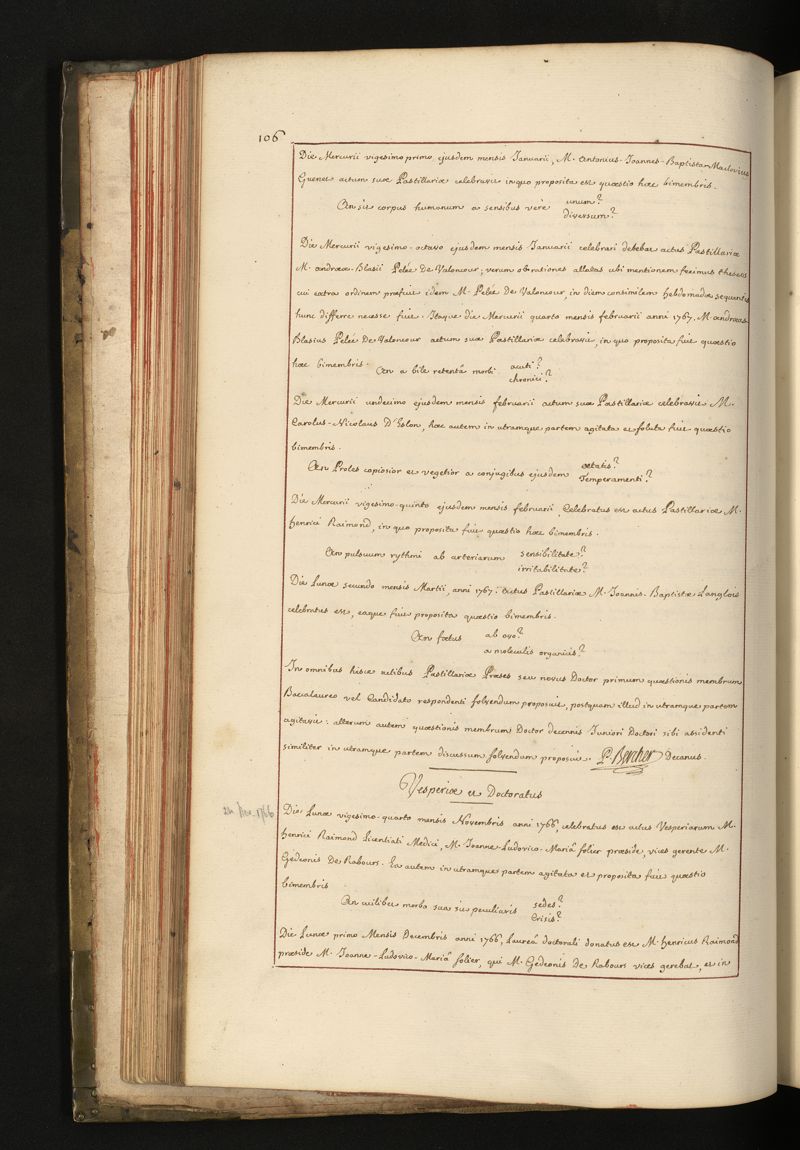 106
Die Mercurii vigesimo primo, ejusdem mensis Januarii, M. Antonius-Joannes-Baptista Maclovius
Guenet actum suæ Pastillariæ celebravit in quo proposita est quæstio hæc bimembris.
An sit corpus humanum a sensibus verè unum?
diversum?
Die Mercurii vigesimo-octavo ejusdem mensis Januarii celebrari debebat actus Pastillariæ
M. andreæ-Blasii Pelée De Valoncour, verum ob rationes allatas ubi mentionem fecimus theseos
cui extra ordinem præfuit idem M. Pelée De Valoncour, in diem consimilem hebdomadæ sequentis
hunc differre necesse fuit. Itaque die Mercurii quarto mensis februarii anni 1767, M. andræas
Blasius Pelée De Valoncour actum suæ Pastillariæ celebravit, in quo proposita fuit quæstio
hæc bimembris.
An a bile retentâ morbi acuti?
chronici?
Die Mercurii undecimo ejusdem mensis februarii actum suæ Pastillariæ celebravit M.
Carolus-Nicolaus D'Eslon, hæc autem in utramque partem agitata et soluta fuit quæstio
bimembris.
An Proles copiosior et vegetior a conjugibus ejusdem ætatis?
Temperamenti?
Die Mercurii vigesimo-quinto ejusdem mensis februarii, Celebratus est actus Pastillariæ M.
henrici Raimond, in quo proposita fuit quæstio hæc bimembris.
An pulsuum rythmi ab arteriarum sensibilitate?
irritabilitate?
Die Lunæ secundo mensis Martii, anni 1767. Actus Pastillariæ M. Joannis-Baptistæ Langlois
celebratus est, eaque fuit proposita quæstio bimembris.
An fœtus ab ovo?
a moleculis organicis?
In omnibus hisce actibus Pastillariæ Præses seu novus Doctor primum quæstionis membrum
Baccalaureo vel Candidato respondenti solvendum proposuit, postquam illud in utramque partem
agitavit: alterum autem quæstionis membrum Doctor decennis Juniori Doctori sibi assidenti
similiter in utramque partem discussum solvendum proposuit. P. Bercher Decanus.
Vesperiæ et Doctoratus
24 nov. 1766
Die Lunæ vigesimo-quarto mensis Novembris anni 1766, celebratus est actus Vesperiarum M.
henrici Raimond licentiati Medici, M. Joanne-Ludovico-Mariâ solier præside, vices gerente M.
Gedeonis De Rabours. Ea autem in utramque partem agitata et proposita fuit quæstio
bimembris
An cuilibet morbo sua sit peculiaris sedes?
Crisis?
Die Lunæ primo Mensis Decembris anni 1766, Laureâ doctorali donatus est M. henricus Raimond
præside M. Joanne-Ludovico-Mariâ solier, qui M. Gedeonis De Rabours vices gerebat, et in